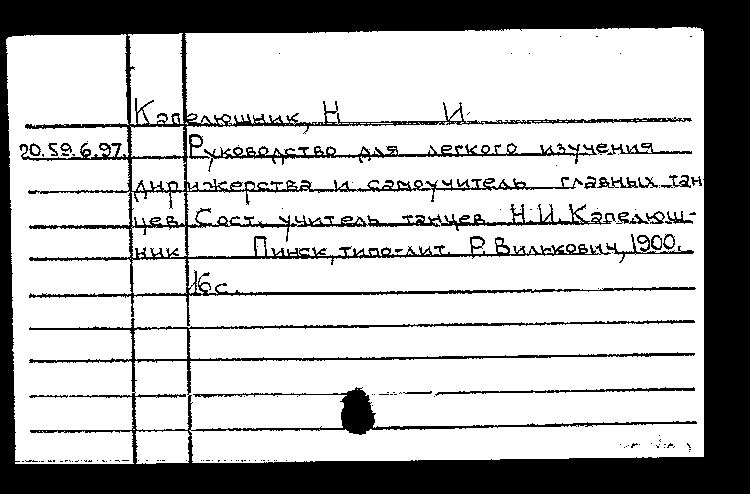 Капелюшник, Н И
20.59.6.97. Руководство для легкого изучения
дирижерства и самоучитель главных тан
цев Сост. учитель танцев Н.И.Капелюш-
ник Пинск, типо-лит. Р. Вилькович, 1900.
16с.